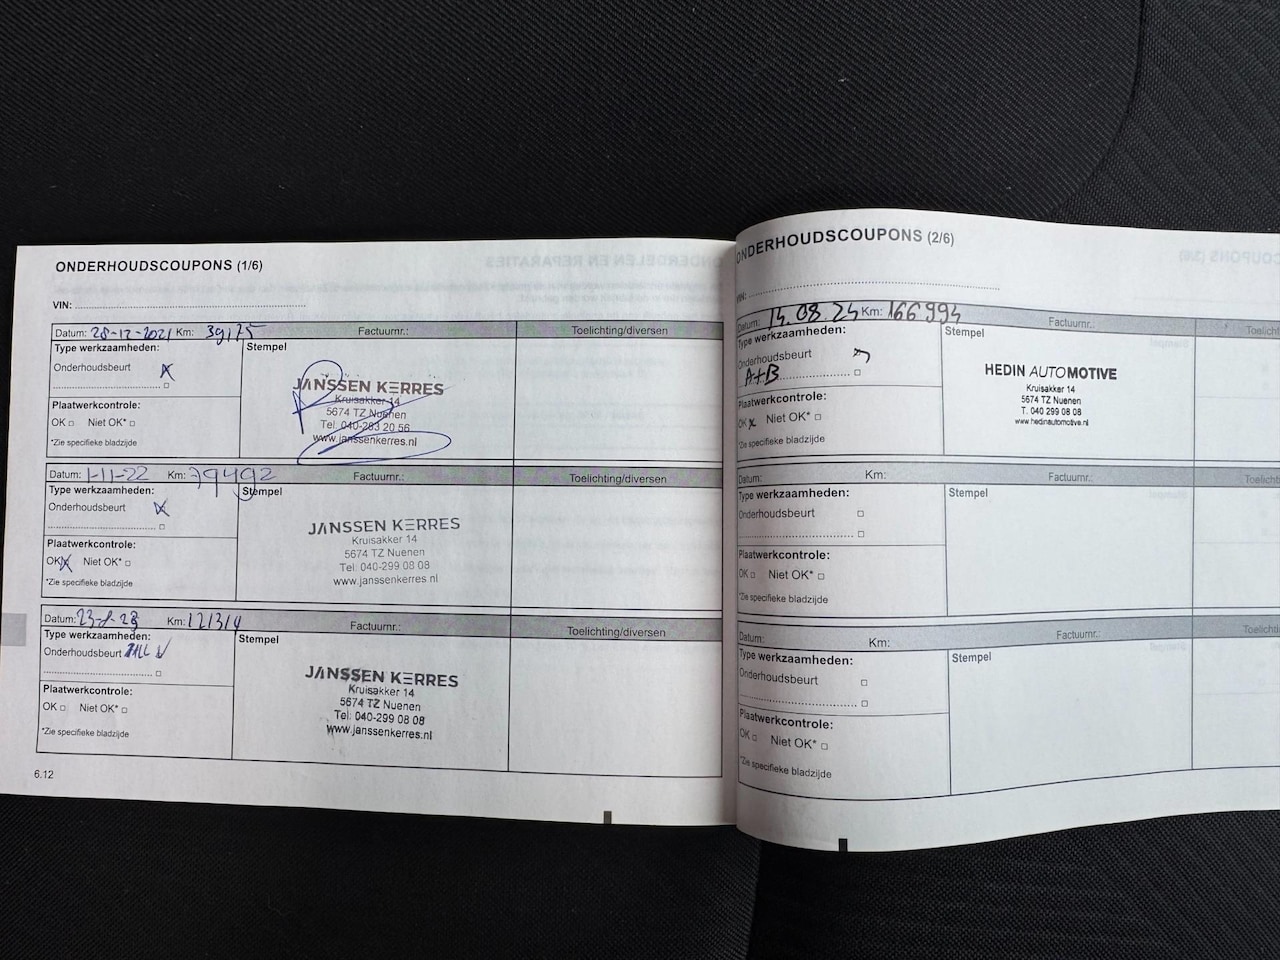 ONDERHOUDSCOUPONS (1/6)
VIN:
Datum: 28-12-2021 Km: 39175 Factuurnr.: Toelichting/diversen
Type werkzaamheden:
Stempel
Onderhoudsbeurt
Plaatwerkcontrole:
OK Niet OK*
*Zie specifieke bladzijde
JANSSEN KERRES
Kruisakker 14
5674 TZ Nuenen
Tel. 040-283 20 56
www.janssenkerres.nl
Datum: 1-11-22 Km: 79492 Factuurnr.: Toelichting/diversen
Type werkzaamheden:
Stempel
Onderhoudsbeurt
Plaatwerkcontrole:
OK Niet OK*
*Zie specifieke bladzijde
JANSSEN KERRES
Kruisakker 14
5674 TZ Nuenen
Tel: 040-299 08 08
www.janssenkerres.nl
Datum: Km: 121314 Factuurnr.: Toelichting/diversen
Type werkzaamheden:
Stempel
Onderhoudsbeurt
Plaatwerkcontrole:
OK Niet OK*
*Zie specifieke bladzijde
JANSSEN KERRES
Kruisakker 14
5674 TZ Nuenen
Tel: 040-299 08 08
www.janssenkerres.nl
6.12
ONDERHOUDSCOUPONS (2/6)
VIN:
Datum: 14.08.24 Km: 166994 Factuurnr.:
Type werkzaamheden:
Stempel
Onderhoudsbeurt
A+B
Plaatwerkcontrole:
OK Niet OK*
*Zie specifieke bladzijde
HEDIN AUTOMOTIVE
Kruisakker 14
5674 TZ Nuenen
T. 040 299 08 08
www.hedinautomotive.nl
Datum: Km: Factuurnr.:
Type werkzaamheden:
Stempel
Onderhoudsbeurt
Plaatwerkcontrole:
OK Niet OK*
*Zie specifieke bladzijde
Datum: Km: Factuurnr.:
Type werkzaamheden:
Stempel
Onderhoudsbeurt
Plaatwerkcontrole:
OK Niet OK*
*Zie specifieke bladzijde